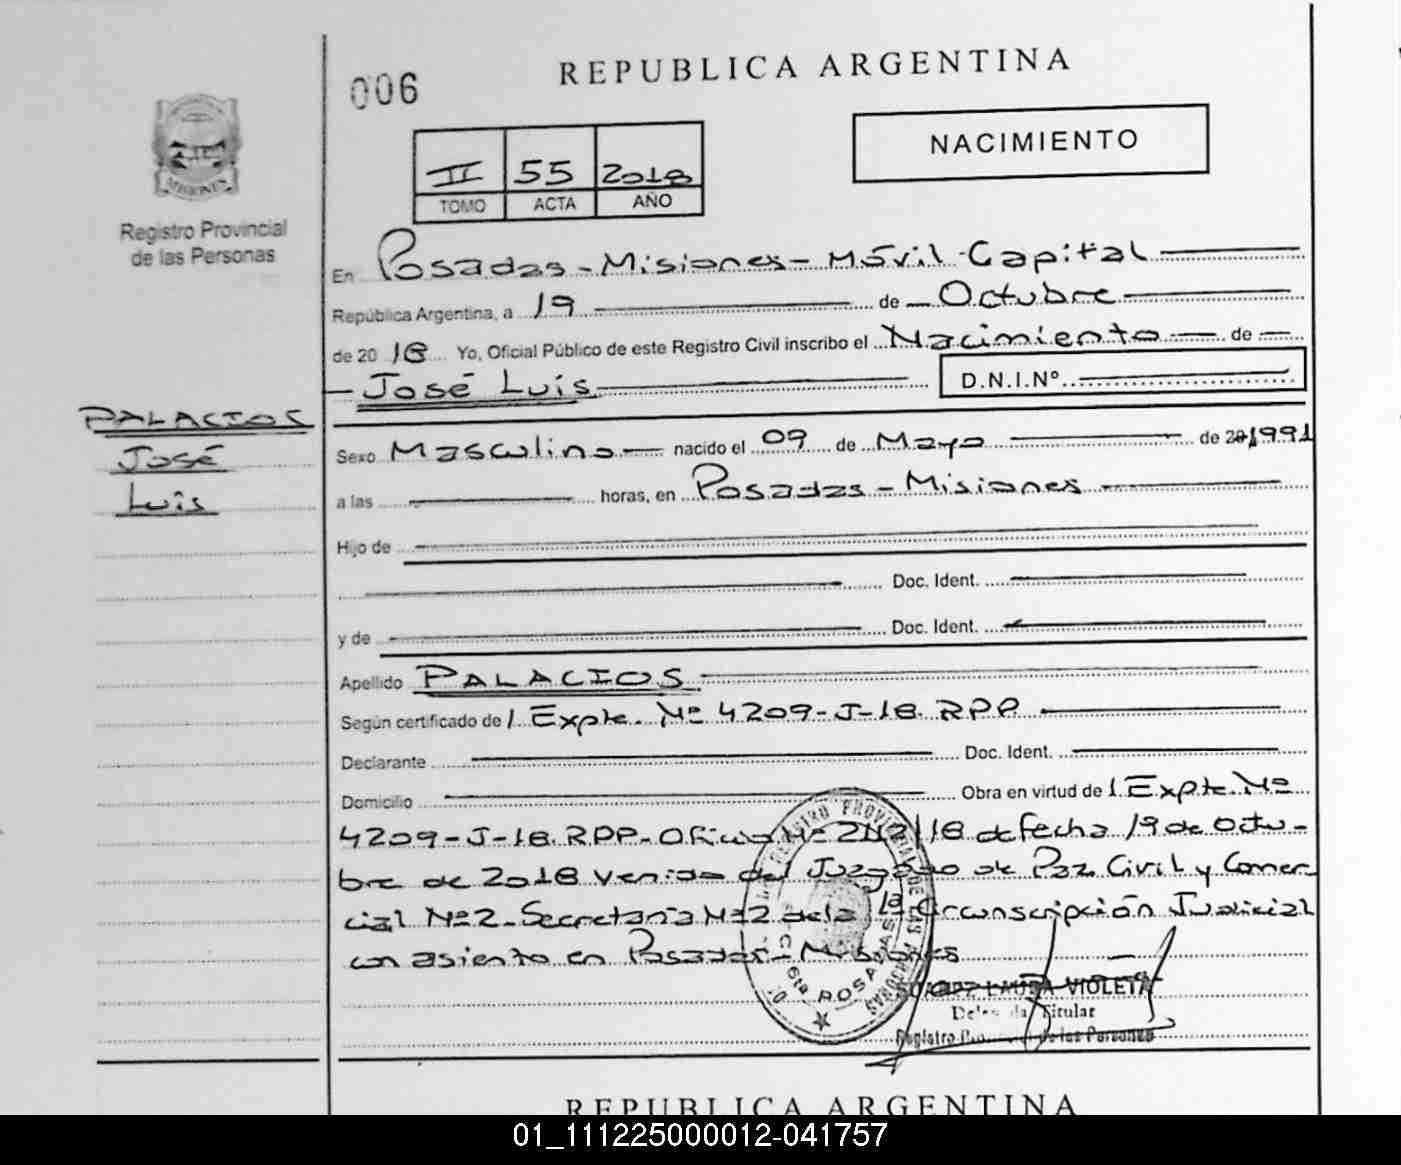 006
REPUBLICA ARGENTINA
NACIMIENTO
II 55 2018
TOMO ACTA AÑO
MISIONES
Registro Provincial
de las Personas
En Posadas - Misiones - Móvil - Capital
República Argentina, a 19 de Octubre
de 2018 Yo, Oficial Público de este Registro Civil inscribo el Nacimiento de
José Luis D.N.I.Nº
PALACIOS
José
Luis
Sexo Masculino nacido el 09 de Mayo de 1991
a las horas, en Posadas - Misiones
Hijo de
Doc. Ident.
y de Doc. Ident.
Apellido PALACIOS
Según certificado de / Expte. Nº 4209-J-18. RPP
Declarante Doc. Ident.
Domicilio Obra en virtud de / Expte. Nº
4209-J-18. RPP- Oficio Nº /18 de fecha 19 de Octu-
bre de 2018 venido del Juzgado de Paz Civil y Comer
cial Nº2- Secretaría Nº2 de la 1ª Circunscripción Judicial
con asiento en Posadas - Misiones
REGISTRO PROVINCIAL DE LAS PERSONAS
6ta POSADAS
LAURA VIOLETA
Titular
Registro de las Personas
REPUBLICA ARGENTINA
01_111225000012-041757